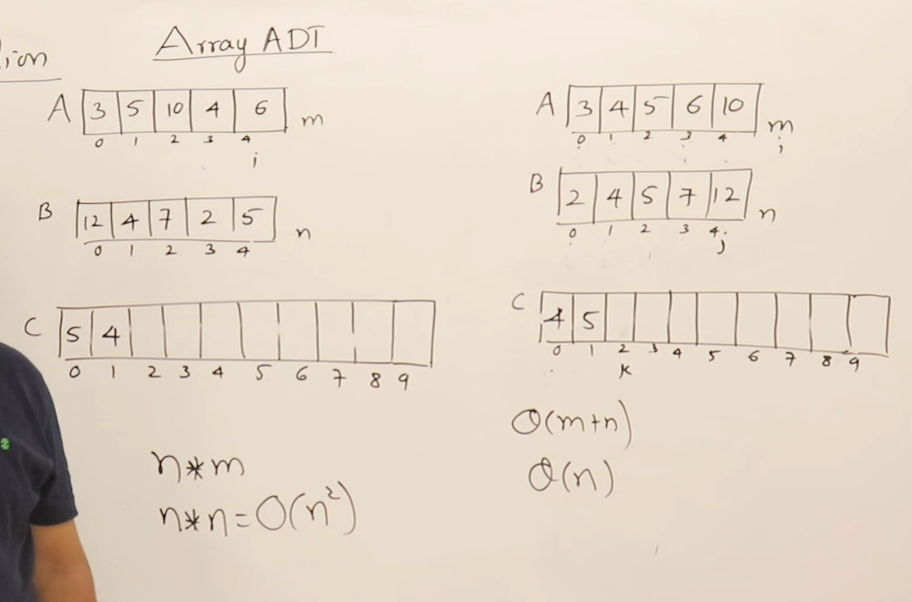 ion
Array ADT
A 3 5 10 4 6 m
0 1 2 3 4
i
B 12 4 7 2 5 n
0 1 2 3 4
C 5 4
0 1 2 3 4 5 6 7 8 9
n*m
n*n=O(n²)
A 3 4 5 6 10 m
0 1 2 3 4
i
B 2 4 5 7 12 n
0 1 2 3 4
j
C 4 5
0 1 2 3 4 5 6 7 8 9
k
θ(m+n)
θ(n)